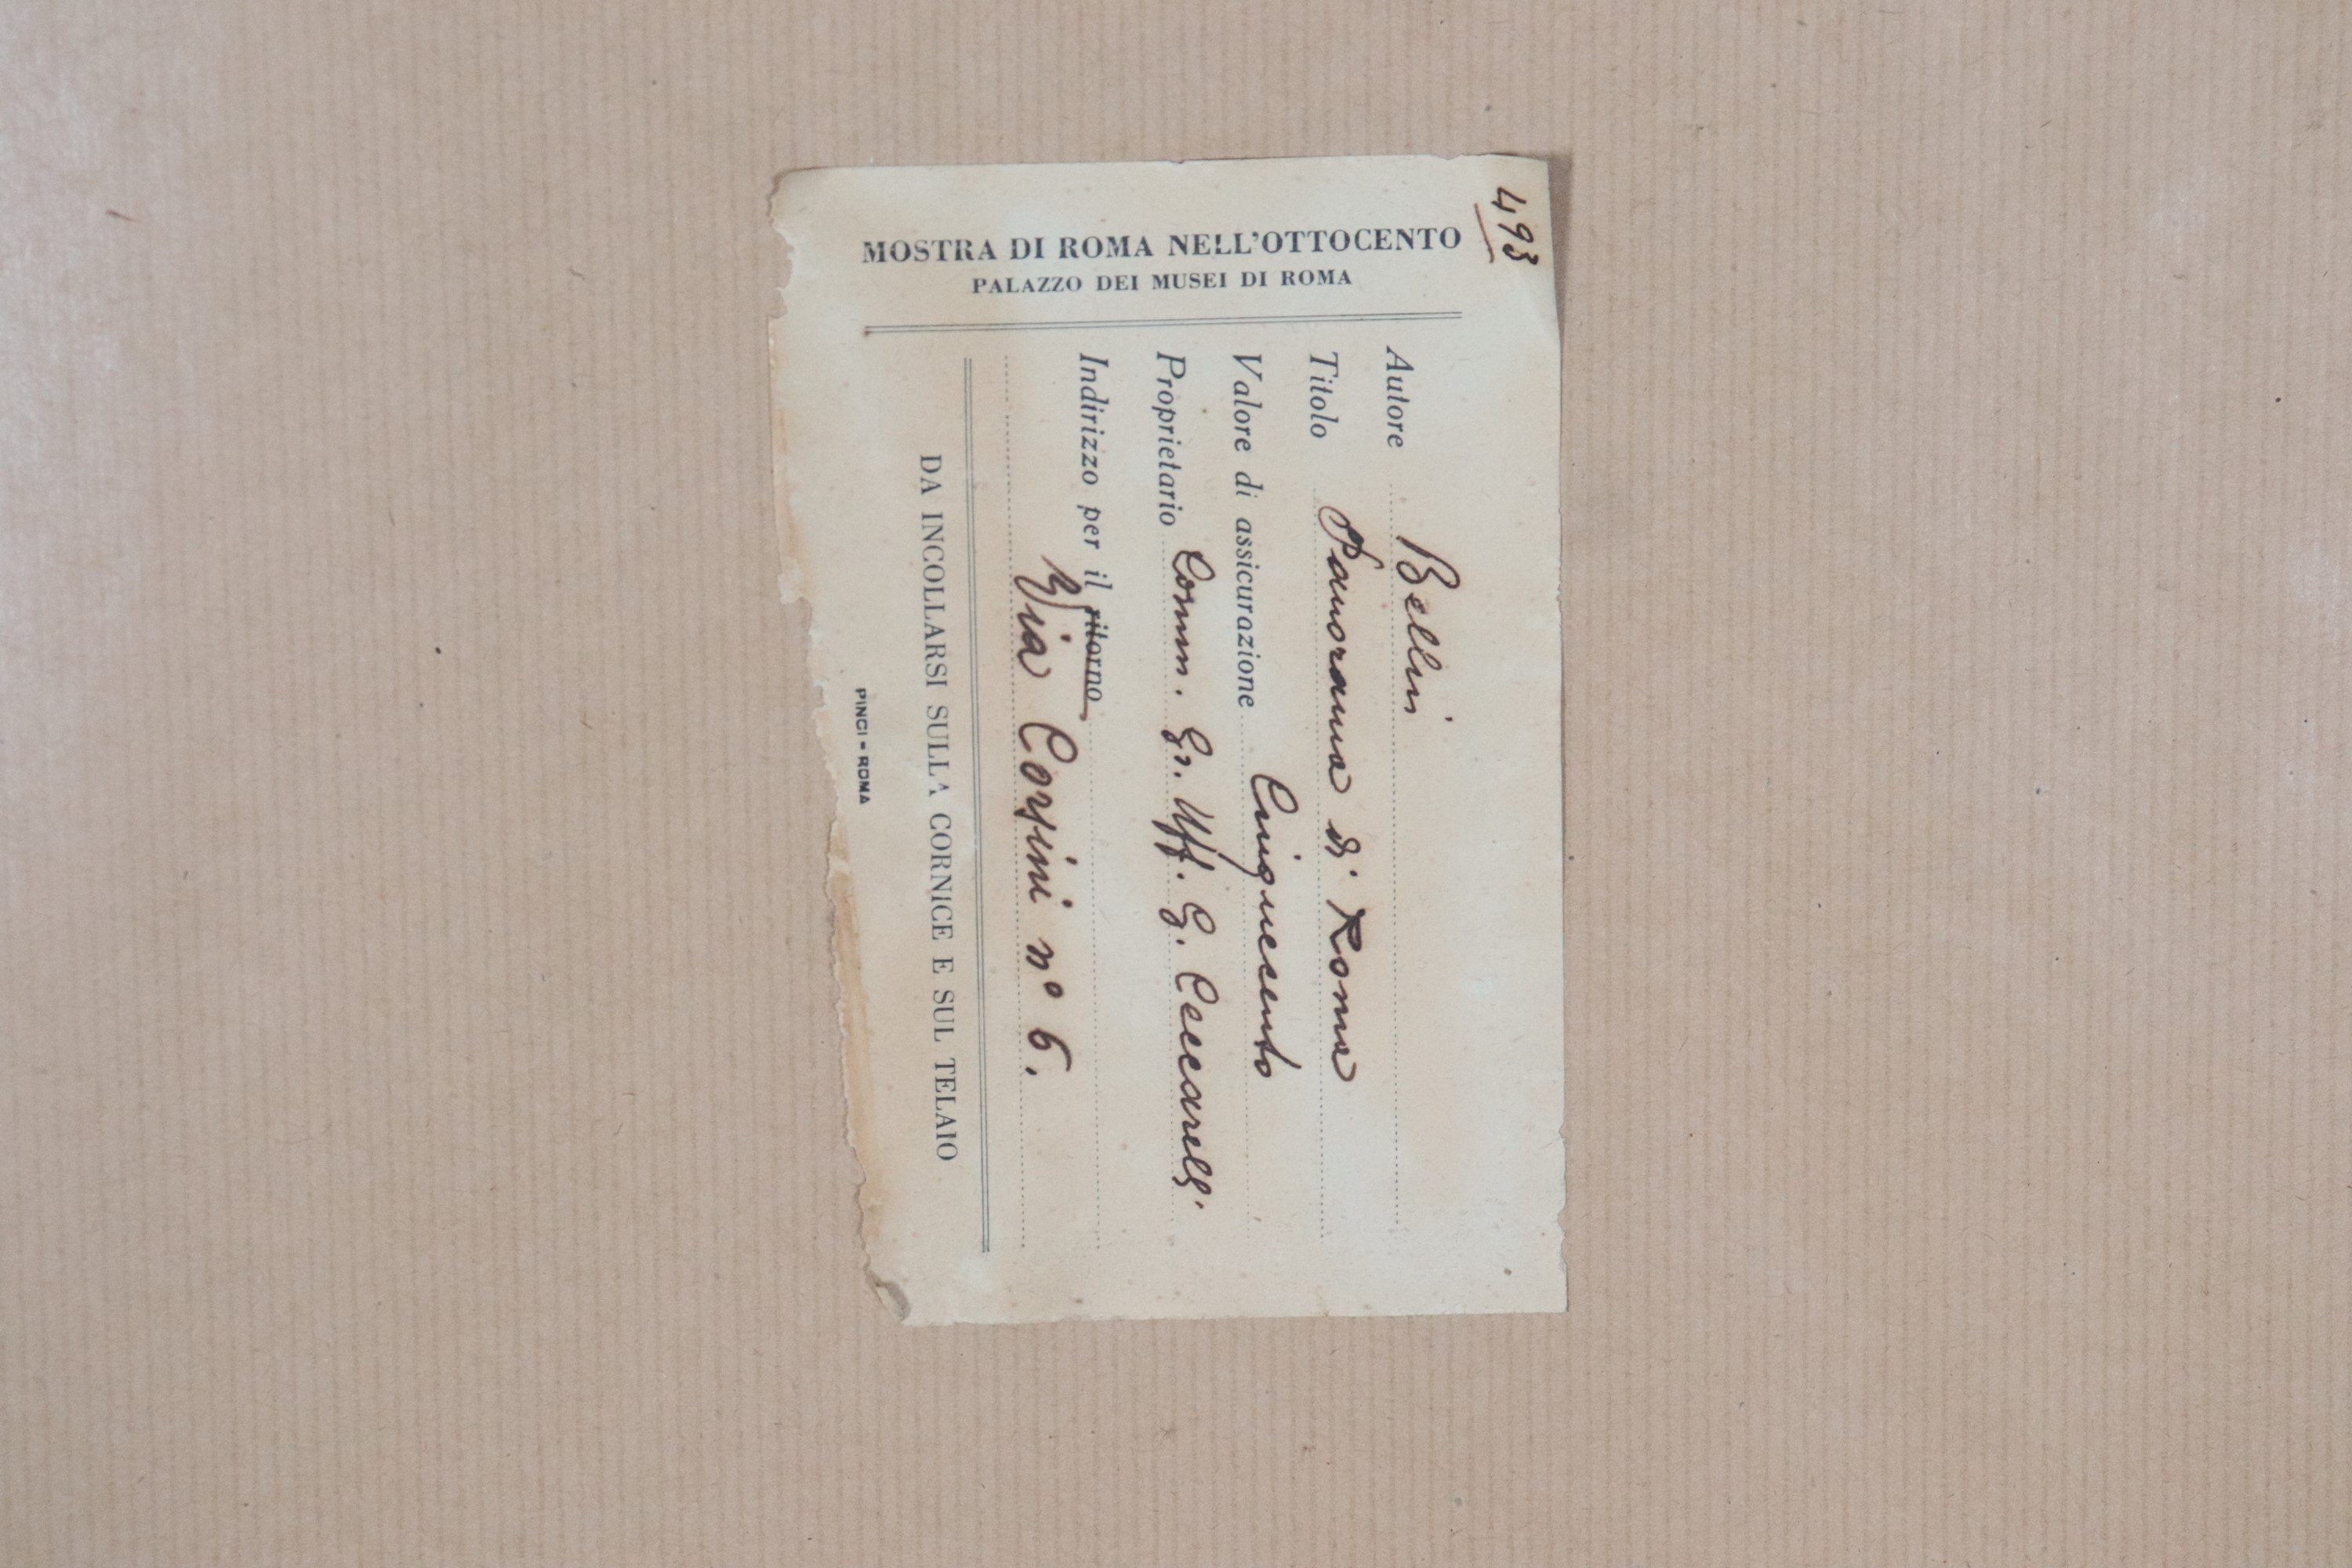 493
MOSTRA DI ROMA NELL'OTTOCENTO
PALAZZO DEI MUSEI DI ROMA
Autore Bellini
Titolo Panorama di Roma
Valore di assicurazione Cinquecento
Proprietario Comm. Gr. Uff. G. Ceccarelli
Indirizzo per il ritorno
Via Corsini n° 6.
DA INCOLLARSI SULLA CORNICE E SUL TELAIO
PINCI - ROMA